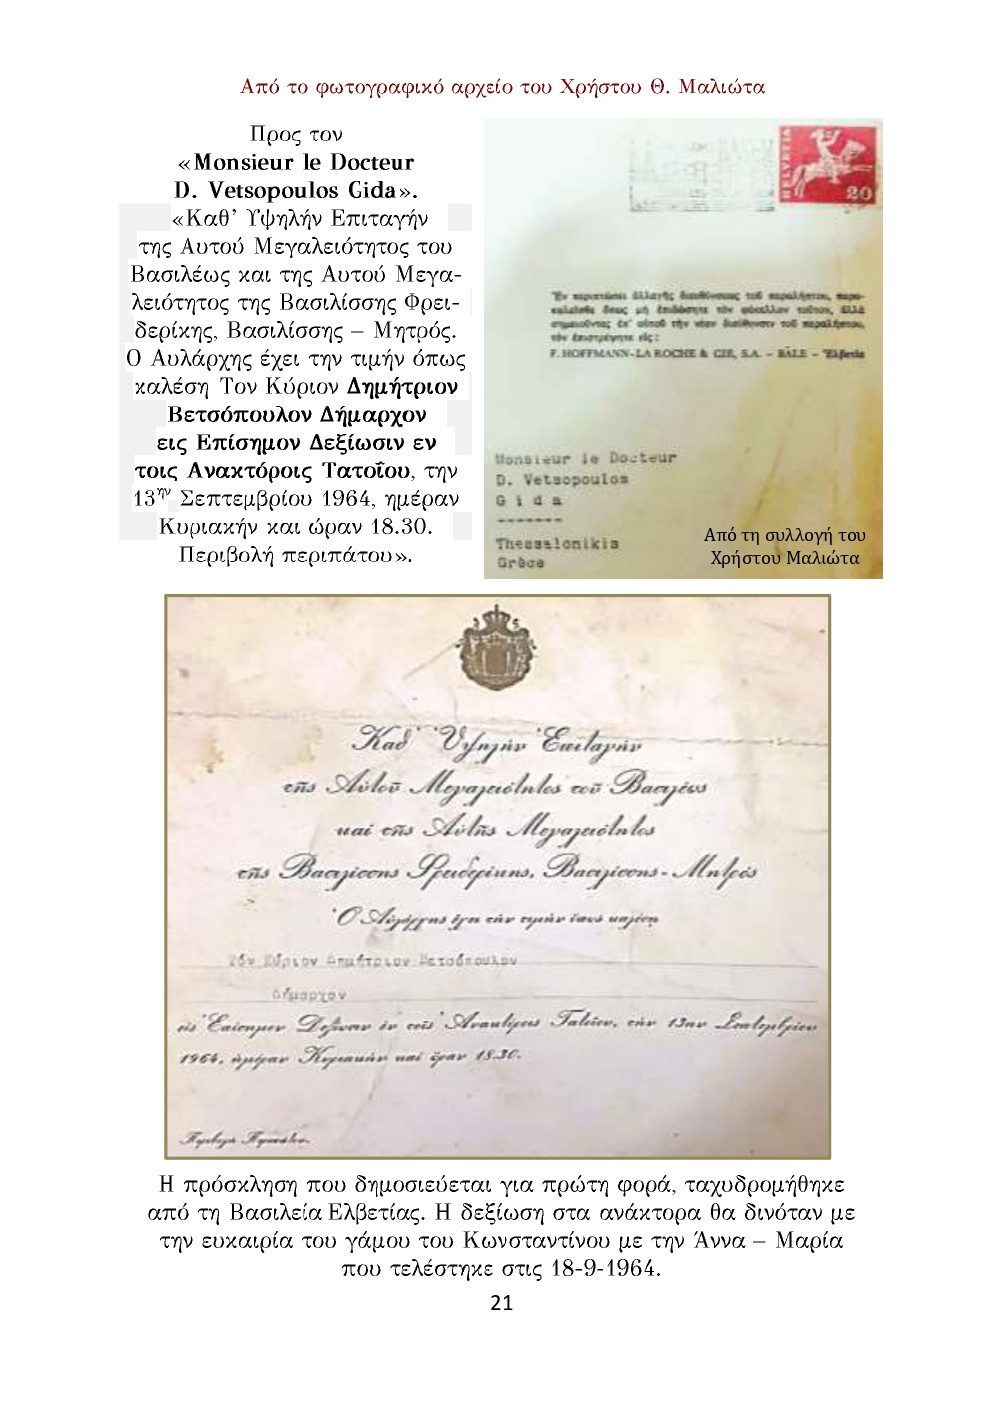 Από το φωτογραφικό αρχείο του Χρήστου Θ. Μαλιώτα
Προς τον
«Monsieur le Docteur
D. Vetsopoulos Gida».
«Καθ’ Υψηλήν Επιταγήν
της Αυτού Μεγαλειότητος του
Βασιλέως και της Αυτού Μεγα-
λειότητος της Βασιλίσσης Φρει-
δερίκης, Βασιλίσσης – Μητρός.
Ο Αυλάρχης έχει την τιμήν όπως
καλέση Τον Κύριον Δημήτριον
Βετσόπουλον Δήμαρχον
εις Επίσημον Δεξίωσιν εν
τοις Ανακτόροις Τατοΐου, την
13ην Σεπτεμβρίου 1964, ημέραν
Κυριακήν και ώραν 18.30.
Περιβολή περιπάτου».
HELVETIA
20
Ἐν περιπτώσει ἀλλαγῆς διευθύνσεως τοῦ παραλήπτου, παρα-
καλεῖσθε ὅπως μὴ ἐπιδώσητε τὸν φάκελλον τοῦτον, ἀλλὰ
σημειοῦντες ἐπ' αὐτοῦ τὴν νέαν διεύθυνσιν τοῦ παραλήπτου,
τὸν ἐπιστρέψητε εἰς :
F. HOFFMANN-LA ROCHE & CIE, S.A. – BÂLE – Ἑλβετία
Monsieur le Docteur
D. Vetsopoulos
G i d a
-------
Thessalonikis
Grèce
Από τη συλλογή του
Χρήστου Μαλιώτα
Καθ' Ὑψηλὴν Ἐπιταγὴν
τῆς Αὐτοῦ Μεγαλειότητος τοῦ Βασιλέως
καὶ τῆς Αὐτῆς Μεγαλειότητος
τῆς Βασιλίσσης Φρειδερίκης, Βασιλίσσης - Μητρὸς
Ὁ Αὐλάρχης ἔχει τὴν τιμὴν ὅπως καλέσῃ
Τὸν Κύριον Δημήτριον Βετσόπουλον
Δήμαρχον
εἰς Ἐπίσημον Δεξίωσιν ἐν τοῖς Ἀνακτόροις Τατοΐου, τὴν 13ην Σεπτεμβρίου
1964, ἡμέραν Κυριακὴν καὶ ὥραν 18.30.
Περιβολὴ Περιπάτου.
Η πρόσκληση που δημοσιεύεται για πρώτη φορά, ταχυδρομήθηκε
από τη Βασιλεία Ελβετίας. Η δεξίωση στα ανάκτορα θα δινόταν με
την ευκαιρία του γάμου του Κωνσταντίνου με την Άννα – Μαρία
που τελέστηκε στις 18-9-1964.
21